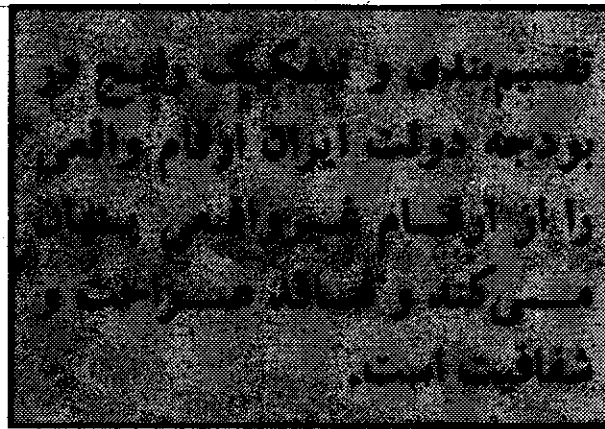 تقسیم‌بندی و تفکیک رایج در
بودجه دولت ایران ارقام واقعی
را از ارقام غیرواقعی پنهان
می‌کند و فاقد صراحت و
شفافیت است.